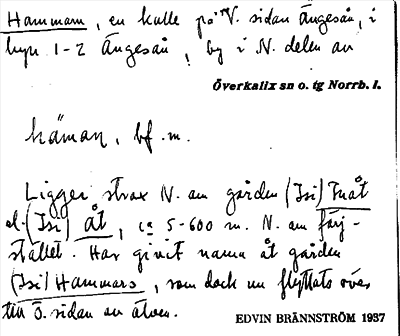 Hammarn, en kulle på V. sidan Ängesån, i
hyn 1-2 Ängesån, by i N. delen av
Överkalix sn o. tg Norrb. l.
håman, bf. m.
Ligger strax N. om gården (Isi) Tnåt
el. (Isi) åt, ca 5-600 m. N. om färj-
stället. Har givit namn åt gården
(Isi) Hammars, som dock nu flyttats över
till Ö. sidan av älven.
EDVIN BRÄNNSTRÖM 1937